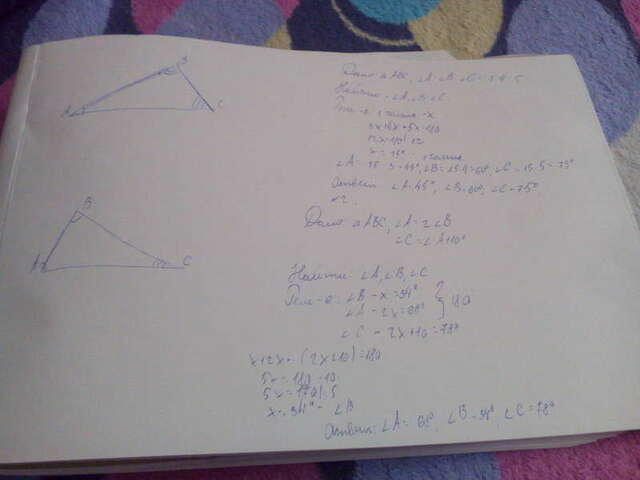 A B C
Дано: △ABC, ∠A:∠B:∠C=3:4:5
Найти: ∠A, ∠B, ∠C
1 часть - x
3x+4x+5x=180
12x=180|:12
x=15°
1 часть
∠A=15·3=45°, ∠B=15·4=60°, ∠C=15·5=75°
Ответ: ∠A=45°, ∠B=60°, ∠C=75°
№2.
A B C
Дано: △ABC, ∠A=2∠B
∠C=∠A+10°
Найти: ∠A, ∠B, ∠C
∠B - x=34°
∠A - 2x=68° } 180
∠C - 2x+10=78°
x+2x+(2x+10)=180
5x=180-10
5x=170|:5
x=34° - ∠B
Ответ: ∠A=68°, ∠B=34°, ∠C=78°